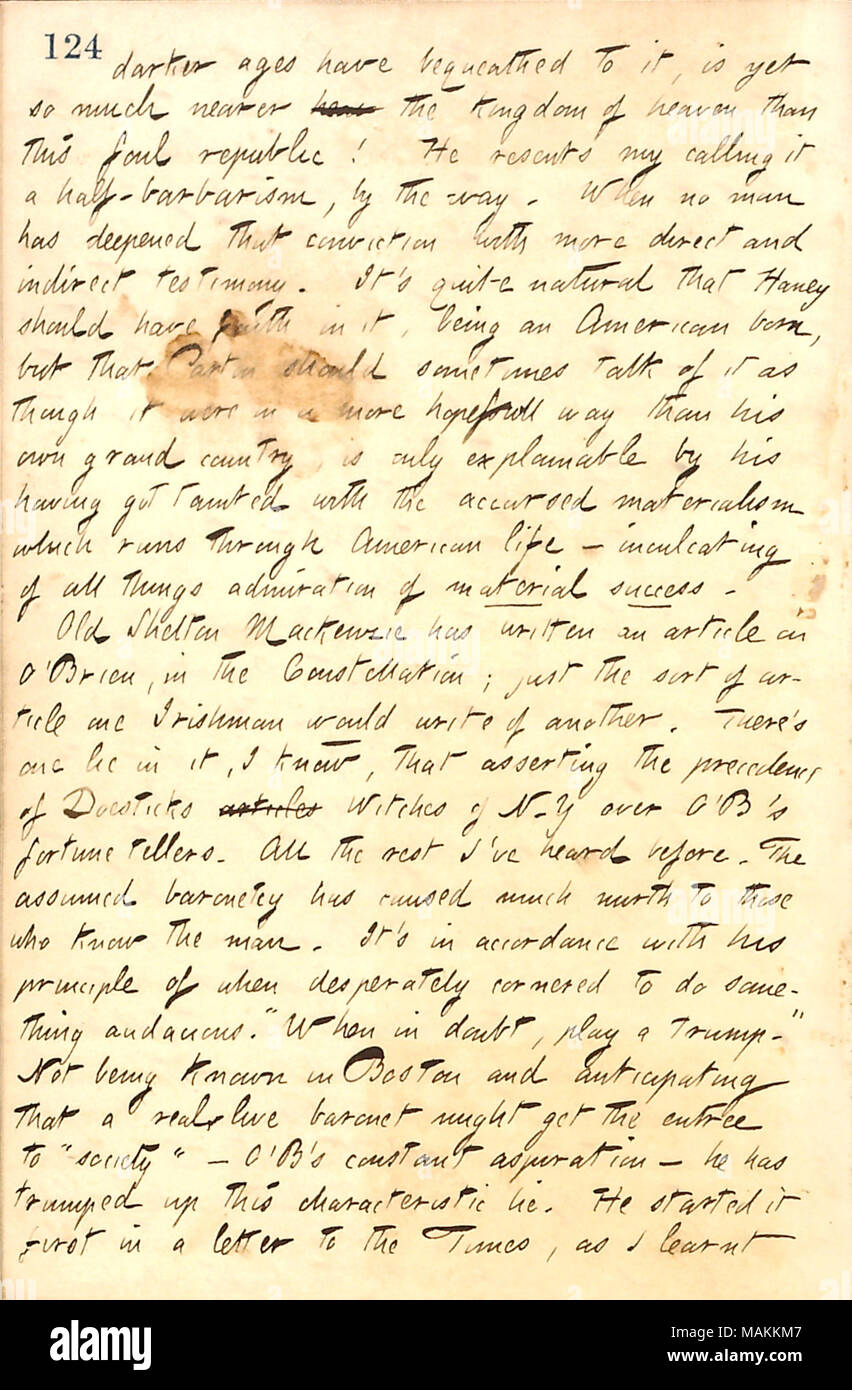 124
darker ages have bequeathed to it, is yet
so much nearer hea the kingdom of heaven than
this foul republic! He resents my calling it
a half-barbarism, by the-way. When no man
has deepened that conviction with more direct and
indirect testimony. It's quite natural that Haney
should have faith in it, being an American born,
but that Parton should sometimes talk of it as
though it were in a more hopefull way than his
own grand country, is only explainable by his
having got tainted with the accursed materialism
which runs through American life — inculcating
of all things admiration of material success.
Old Shelton Mackenzie has written an article on
O'Brien, in the Constellation; just the sort of ar-
ticle one Irishman would write of another. There's
one lie in it, I know, that asserting the precedence
of Doesticks articles Witches of N-Y over O'B's
fortune tellers. All the rest I've heard before. The
assumed baronetcy has caused much mirth to those
who know the man. It's in accordance with his
principle of when desperately cornered to do some-
thing audacious. "When in doubt, play a trump."
Not being known in Boston and anticipating
that a real, live baronet might get the entrée
to "society" — O'B's constant aspiration — he has
trumped up this characteristic lie. He started it
first in a letter to the Times, as I learnt
alamy
Image ID: MAKKM7
www.alamy.com